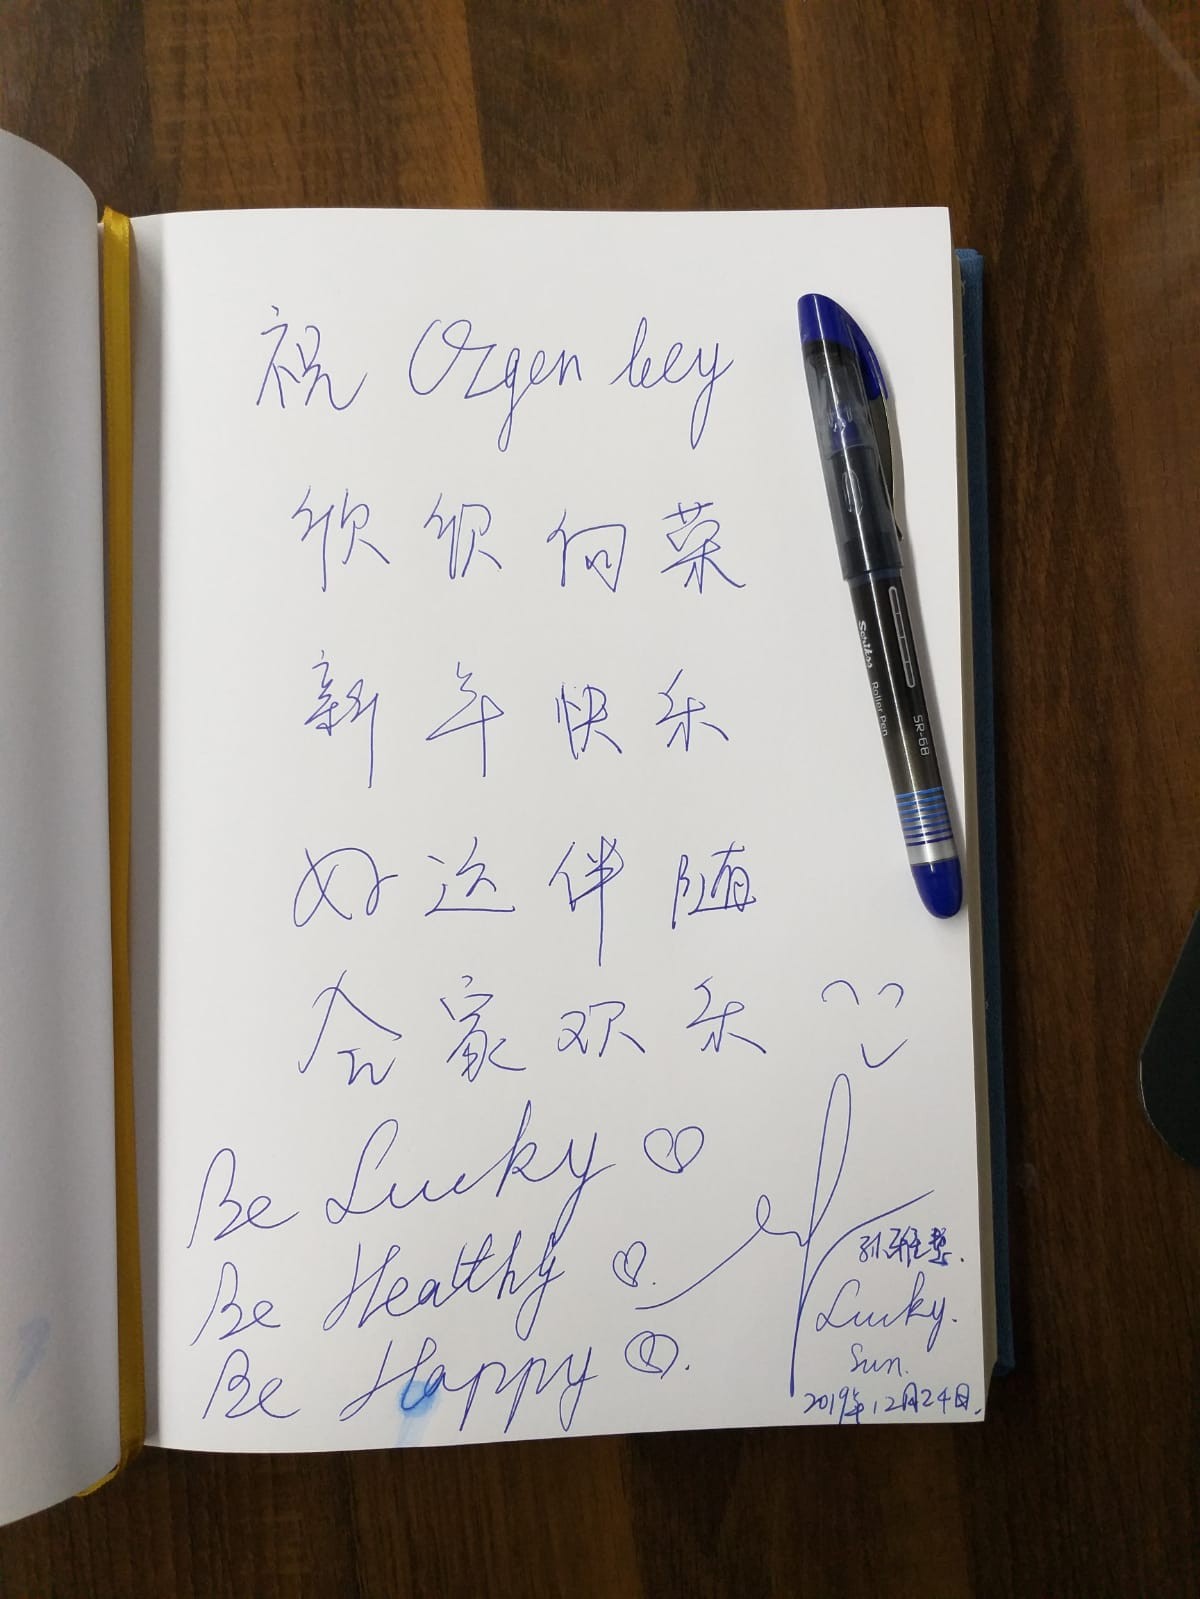 祝 Ozgen bey
欣欣向荣
新年快乐
好运伴随
合家欢乐
Be Lucky
Be Healthy
Be Happy
孙雅慧.
Lucky.
Sun.
2019年12月24日.
Scrikss Roller Pen SR-68